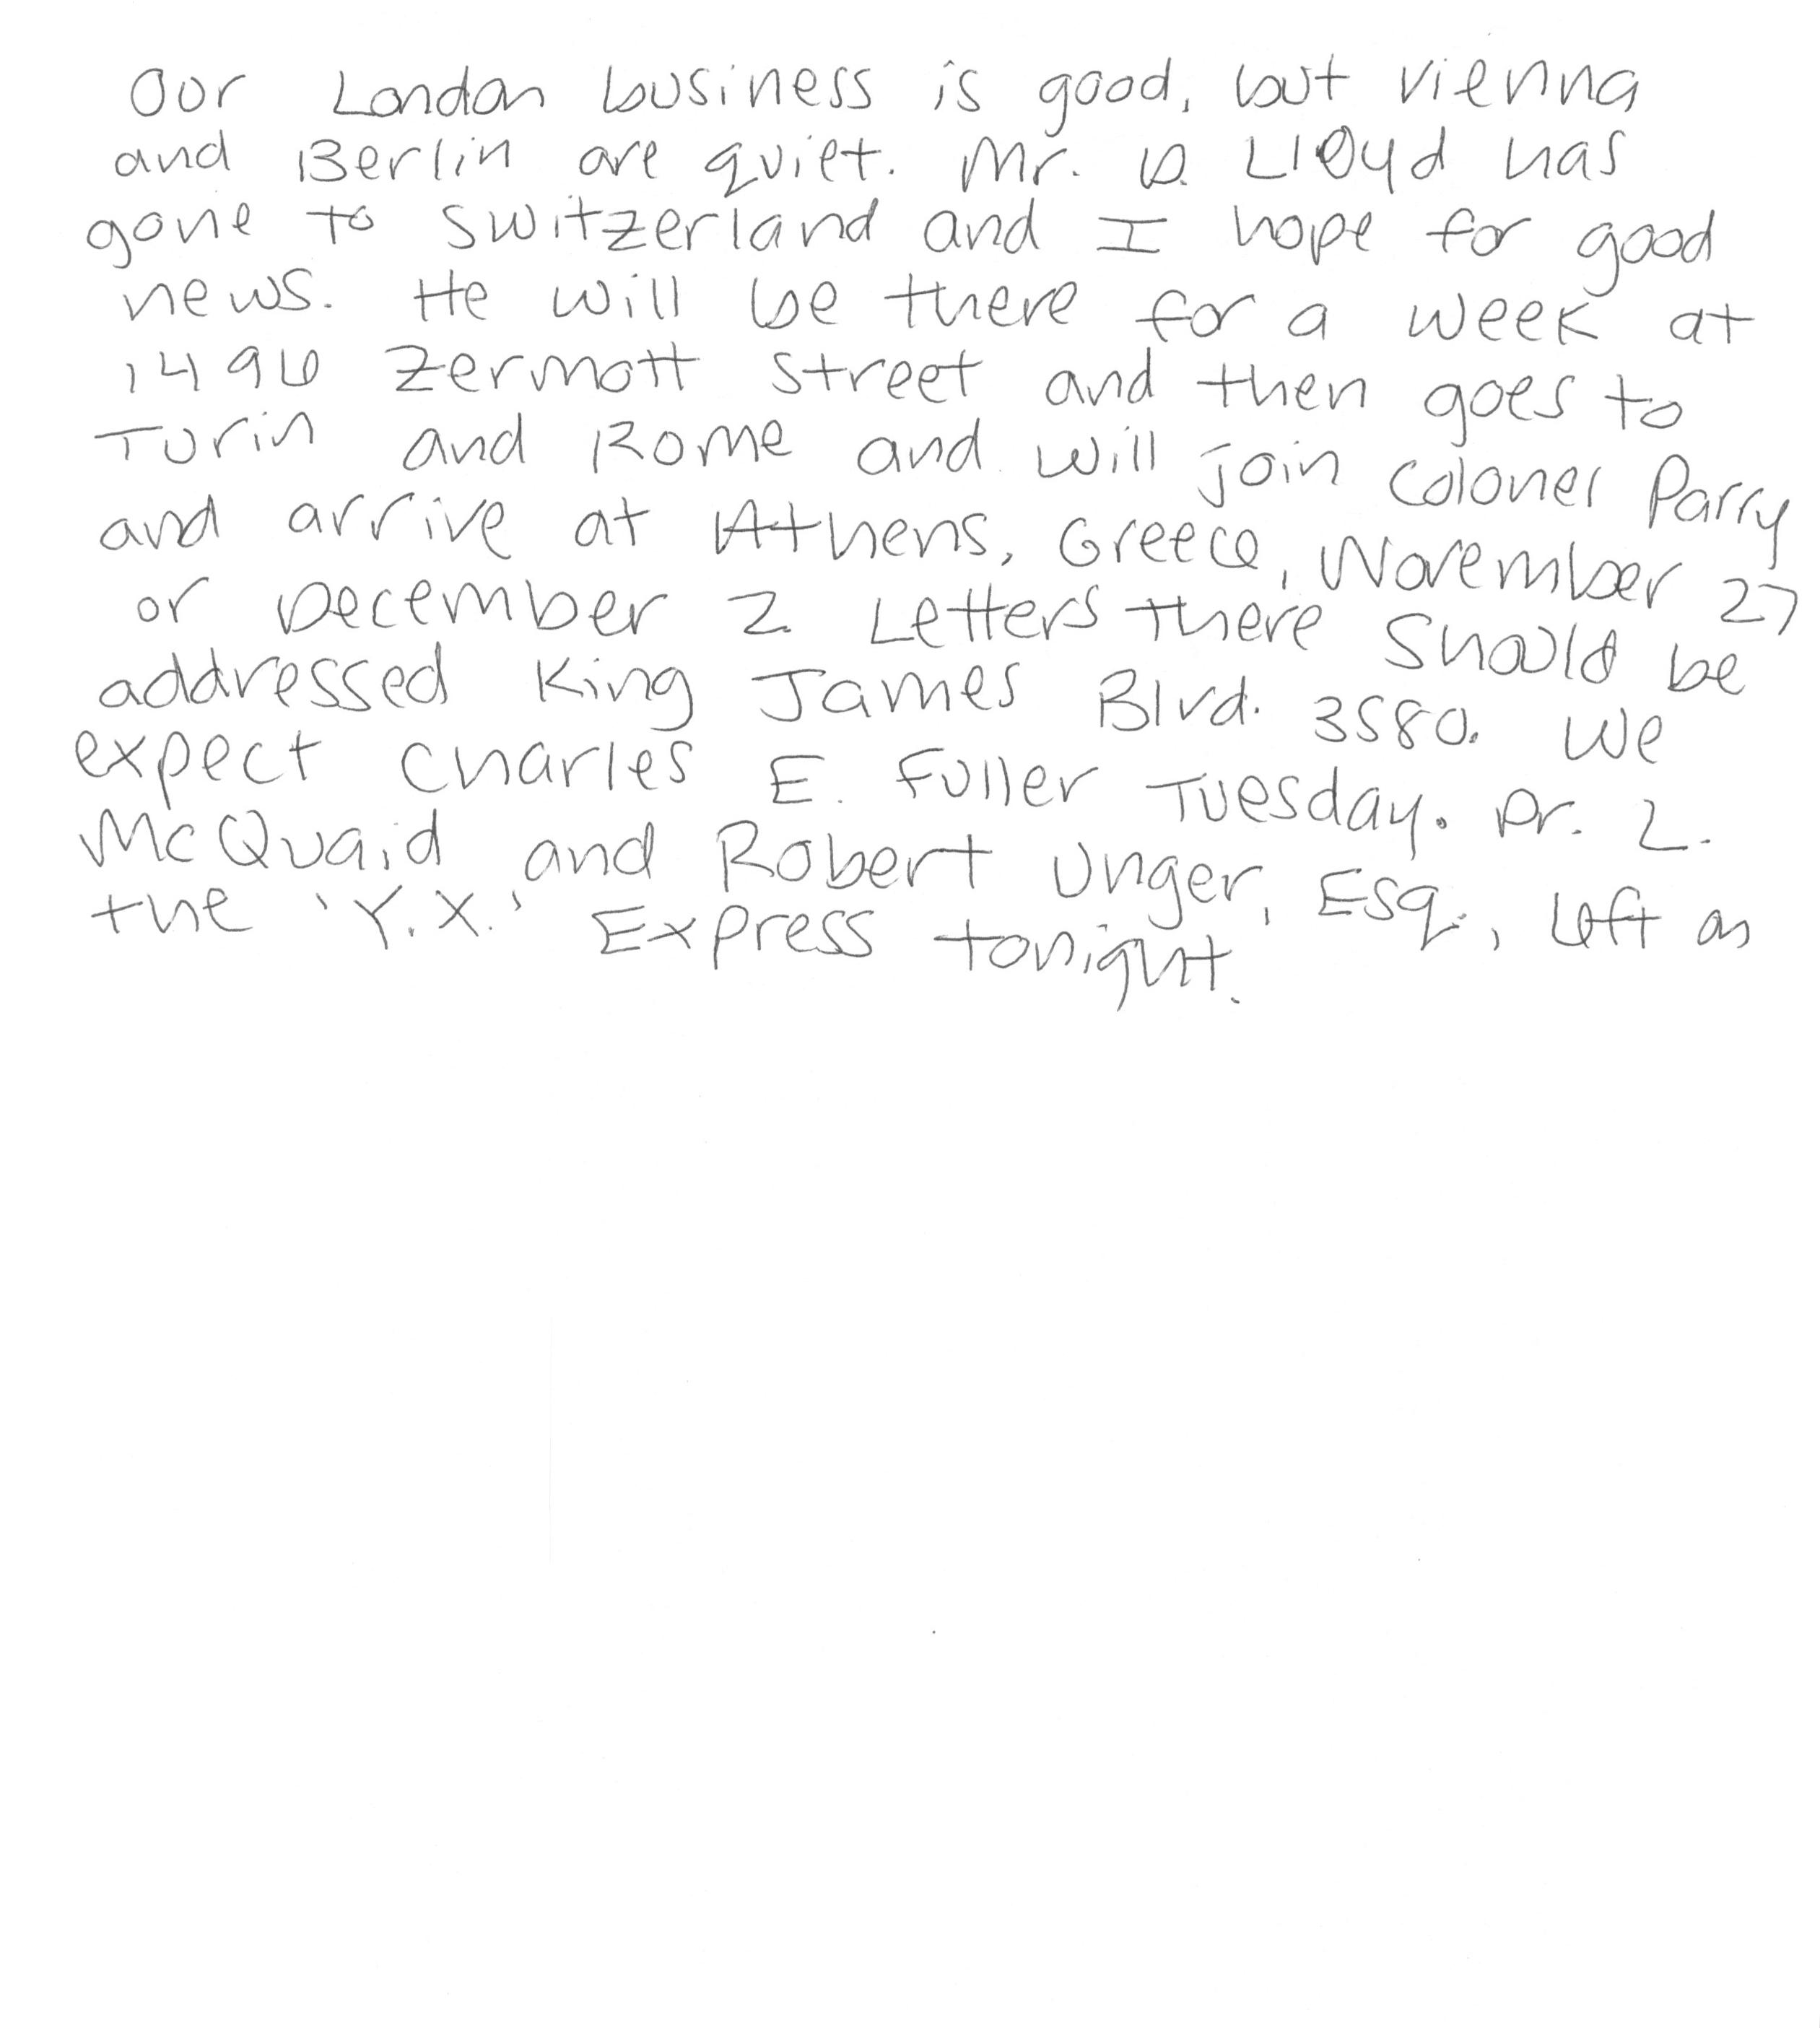 Our London business is good, but Vienna
and Berlin are quiet. Mr. D. Lloyd has
gone to Switzerland and I hope for good
news. He will be there for a week at
1496 Zermott Street and then goes to
Turin and Rome and will join Colonel Parry
and arrive at Athens, Greece, November 27
or December 2. Letters there should be
addressed King James Blvd. 3580. We
expect Charles E. Fuller Tuesday. Dr. L.
McQuaid and Robert Unger, Esq., left on
the 'Y.X.' Express tonight.